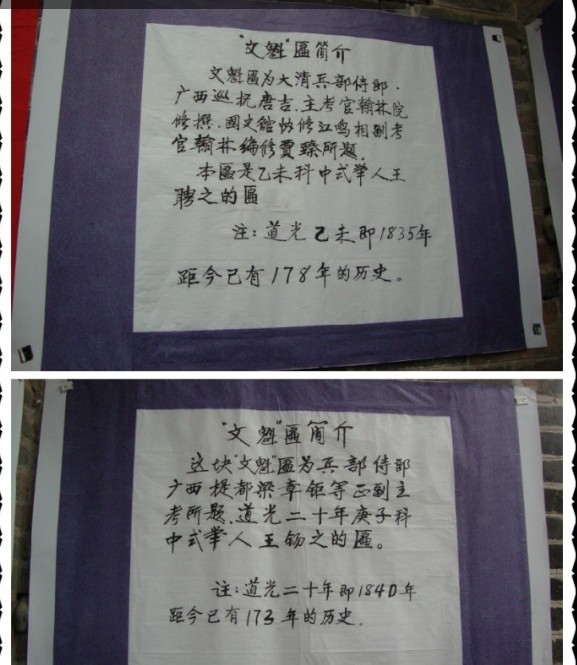 "文魁"匾简介
文魁匾为大清兵部侍郎、
广西巡抚唐吉、主考官翰林院
修撰、国史馆协修江鸣相副考
官翰林编修贾臻所题。
本匾是乙未科中式举人王
聘之的匾
注：道光乙未即1835年
距今已有178年的历史。
"文魁"匾简介
这块"文魁"匾为兵部侍郎
广西提都梁章钜等正副主
考所题、道光二十年庚子科
中式举人王钫之的匾。
注：道光二十年即1840年
距今已有173年的历史.